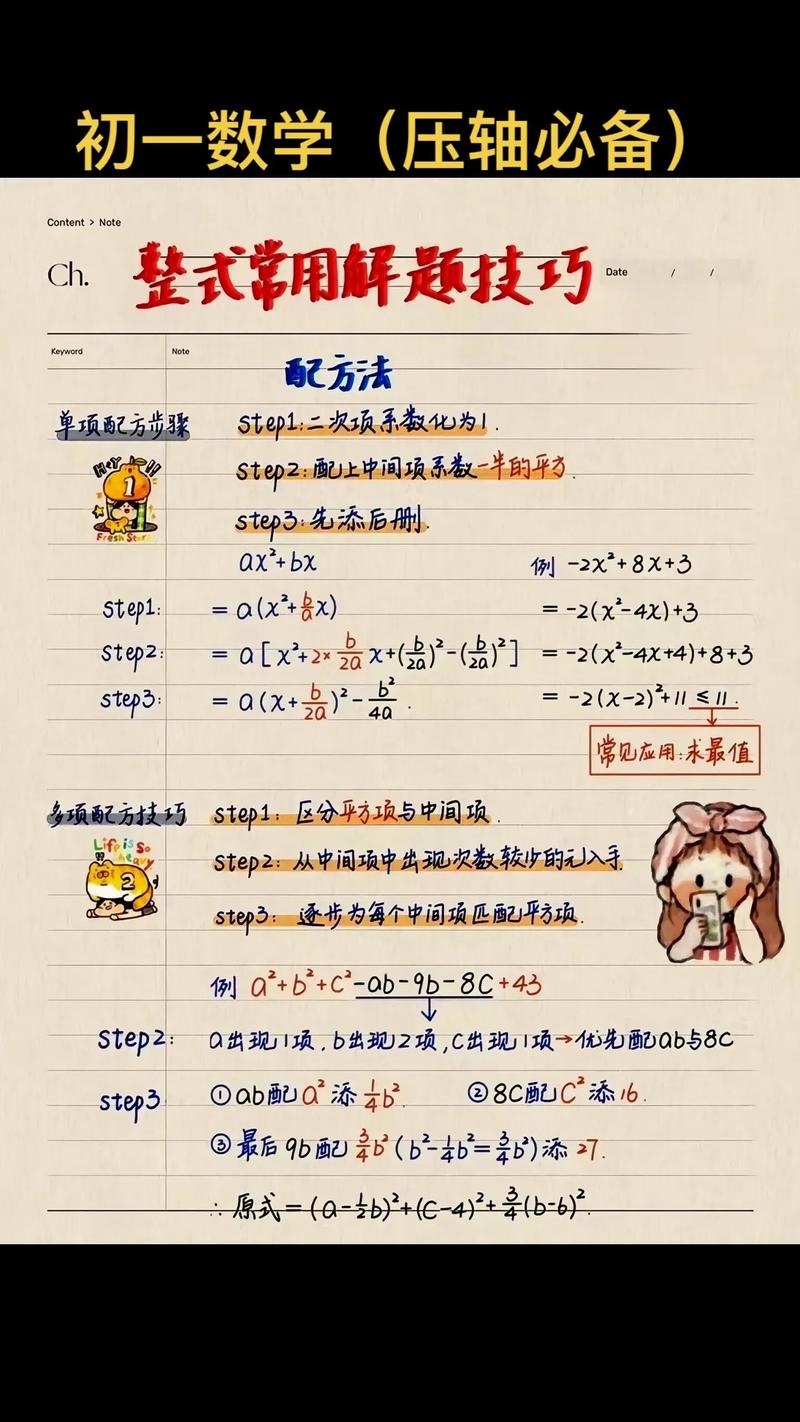 初一数学（压轴必备）
Content > Note
Ch. 整式常用解题技巧 Date / /
Keyword Note
配方法
单项配方步骤 step1:二次项系数化为1.
Hey !!
1
Fresh Start
step2:配上中间项系数一半的平方.
step3:先添后删.
ax²+bx 例 -2x²+8x+3
step1: =a(x²+b/a x) =-2(x²-4x)+3
step2: =a[x²+2×b/2a x+(b/2a)²-(b/2a)²] =-2(x²-4x+4)+8+3
step3: =a(x+b/2a)²-b²/4a. =-2(x-2)²+11≤11.
常见应用:求最值
多项配方技巧 step1: 区分平方项与中间项.
Life is so heavy
2
step2: 从中间项中出现次数较少的元入手.
step3: 逐步为每个中间项匹配平方项.
例 a²+b²+c²-ab-9b-8c+43
step2: a出现1项.b出现2项,c出现1项→优先配ab与8c
step3 ①ab配a²添1/4b². ②8c配c²添16.
③最后9b配3/4b²(b²-1/4b²=3/4b²)添27.
∴原式=(a-1/2b)²+(c-4)²+3/4(b-6)².